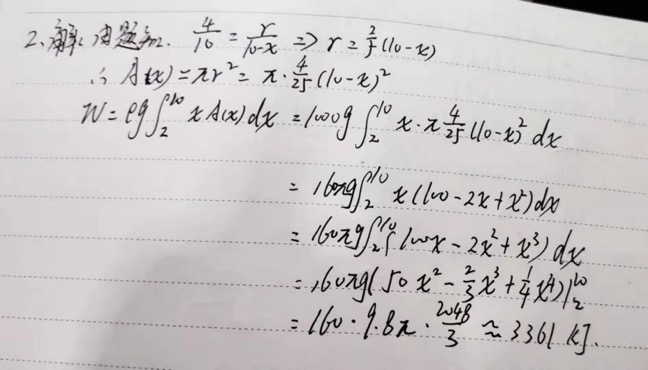 2. 解: 由题知. 4/10 = r/(10-x) ⇒ r = 2/5(10-x)
∴ A(x) = πr² = π·4/25(10-x)²
W = ρg∫₂¹⁰ x A(x)dx = 1000g ∫₂¹⁰ x·π 4/25(10-x)² dx
= 160πg∫₂¹⁰ x(100-2x+x²)dx
= 160πg∫₂¹⁰(100x-2x²+x³)dx
= 160πg(50x²-2/3x³+1/4x⁴)|₂¹⁰
= 160·9.8π·2048/3 ≈ 3361 kJ.